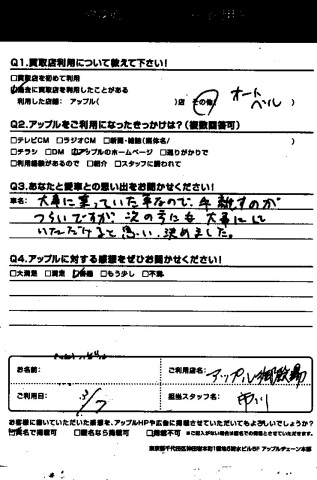 Q1.買取店利用について教えて下さい!
□買取店を初めて利用
過去に買取店を利用したことがある
利用した店舗： アップル( )店 その他( オートベル )
Q2.アップルをご利用になったきっかけは?(複数回答可)
□テレビCM □ラジオCM □新聞・雑誌(媒体名/ )
□チラシ □DM アップルのホームページ □通りがかりで
□利用経験があるので □紹介 □スタッフに誘われて
Q3.あなたと愛車との思い出をお聞かせください!
車名： 大事に乗っていた車なので、手離すのが
つらいですが、次の方にも大事にして
いただけると思い、決めました。
Q4.アップルに対する感想をぜひお聞かせください!
□大満足 □満足 普通 □もう少し □不満
お名前：
ご利用店名： アップル御殿場
ご利用日： 3/7
担当スタッフ名：
お客様に書いていただいた感想を、アップルHPや広告に掲載させていただいてもよろしいでしょうか?
実名で掲載可 □匿名なら掲載可 □掲載不可 ※ご記入がない場合は匿名での掲載とさせていただきます。
東京都千代田区神田 アップルチェーン本部